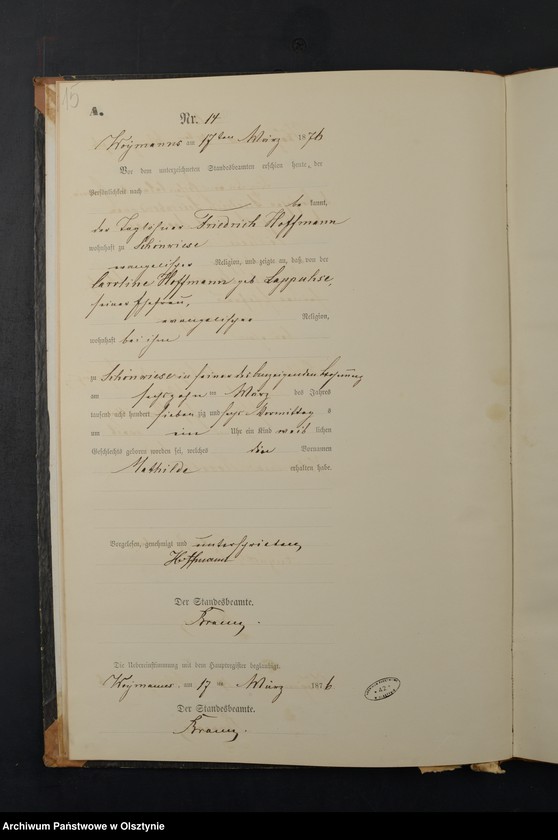 15
A.
Nr. 14
am 17ten März 1876
Vor dem unterzeichneten Standesbeamten erschien heute, der
Persönlichkeit nach
be kannt,
der Friedrich Hoffmann
wohnhaft zu Schönwiese
evangelischer Religion, und zeigte an, daß von der
Caroline Hoffmann geb Lappuhse,
seiner Ehefrau,
evangelischer Religion,
wohnhaft bei ihm
zu Schönwiese in seiner des Anzeigenden Wohnung
am sechszehn ten März des Jahres
tausend acht hundert sieben zig und sechs Vormittag s
um ein Uhr ein Kind weib lichen
Geschlechts geboren worden sei, welches den Vornamen
Mathilde erhalten habe.
Vorgelesen, genehmigt und unterschrieben
Hoffmann
Der Standesbeamte.
Die Uebereinstimmung mit dem Hauptregister beglaubigt.
am 17 ten März 1876
Der Standesbeamte.
Archiwum Państwowe w Olsztynie